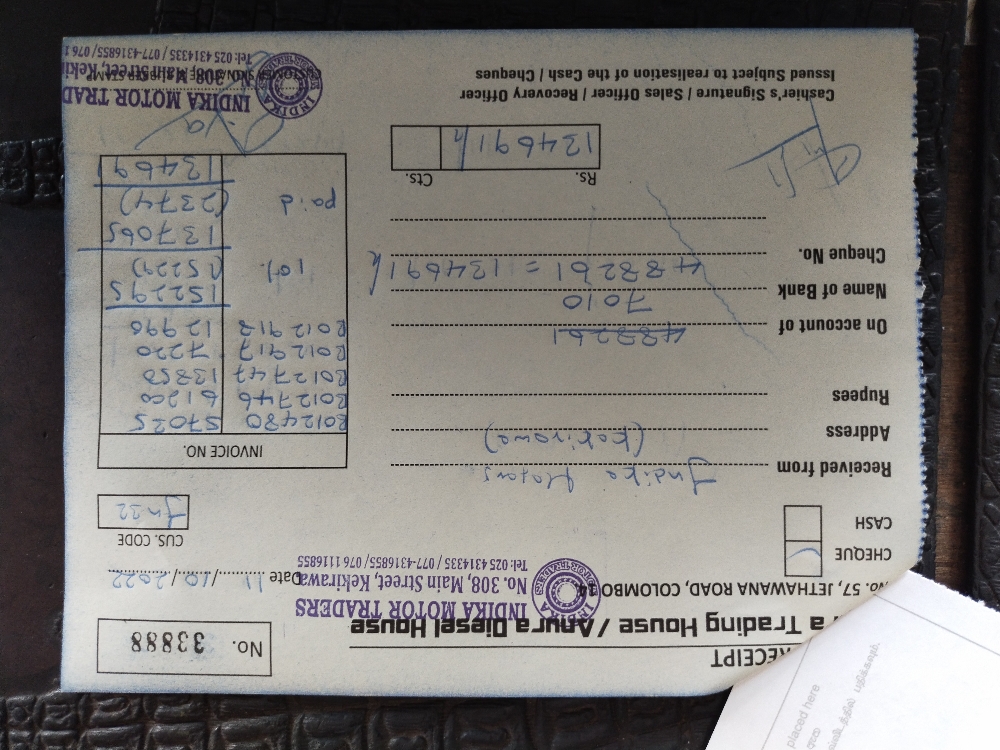 RECEIPT
a Trading House / Anura Diesel House
No. 57, JETHAWANA ROAD, COLOMBO 14
No. 33888
INDIKA MOTOR TRADERS
No. 308, Main Street, Kekirawa
Tel: 025 4314335 / 077-4316855 / 076 1116855
Date 11/10/2022
CHEQUE
CASH
CUS. CODE
Jn22
Received from Indika
Address
Rupees
On account of 488261
7010
Name of Bank
488261 = 134691/-
Cheque No.
Rs. Cts.
134691/-
INVOICE NO.
B012480 57025
B012746 61200
B012747 13850
B012917 7220
B012918 12990
152295
10% (15229)
137065
paid (2374)
134691
Cashier's Signature / Sales Officer / Recovery Officer
Issued Subject to realisation of the Cash / Cheques
INDIKA MOTOR TRAD
No. 308, Main Street, Keki
Tel: 025 4314335 / 077-4316855 / 076 1
placed here